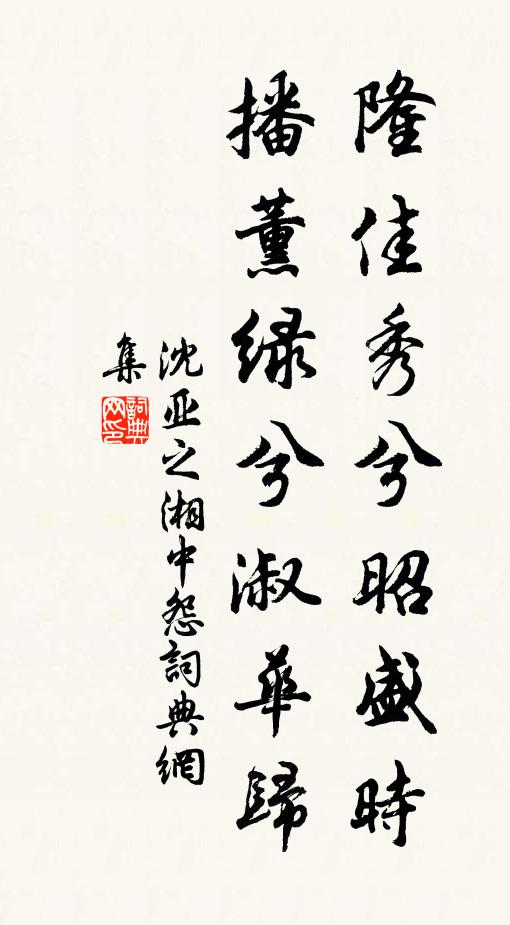 隆佳秀兮昭盛時
播薰綠兮淑華歸
沈亚之湘中怨詞典網
集
詞典网印